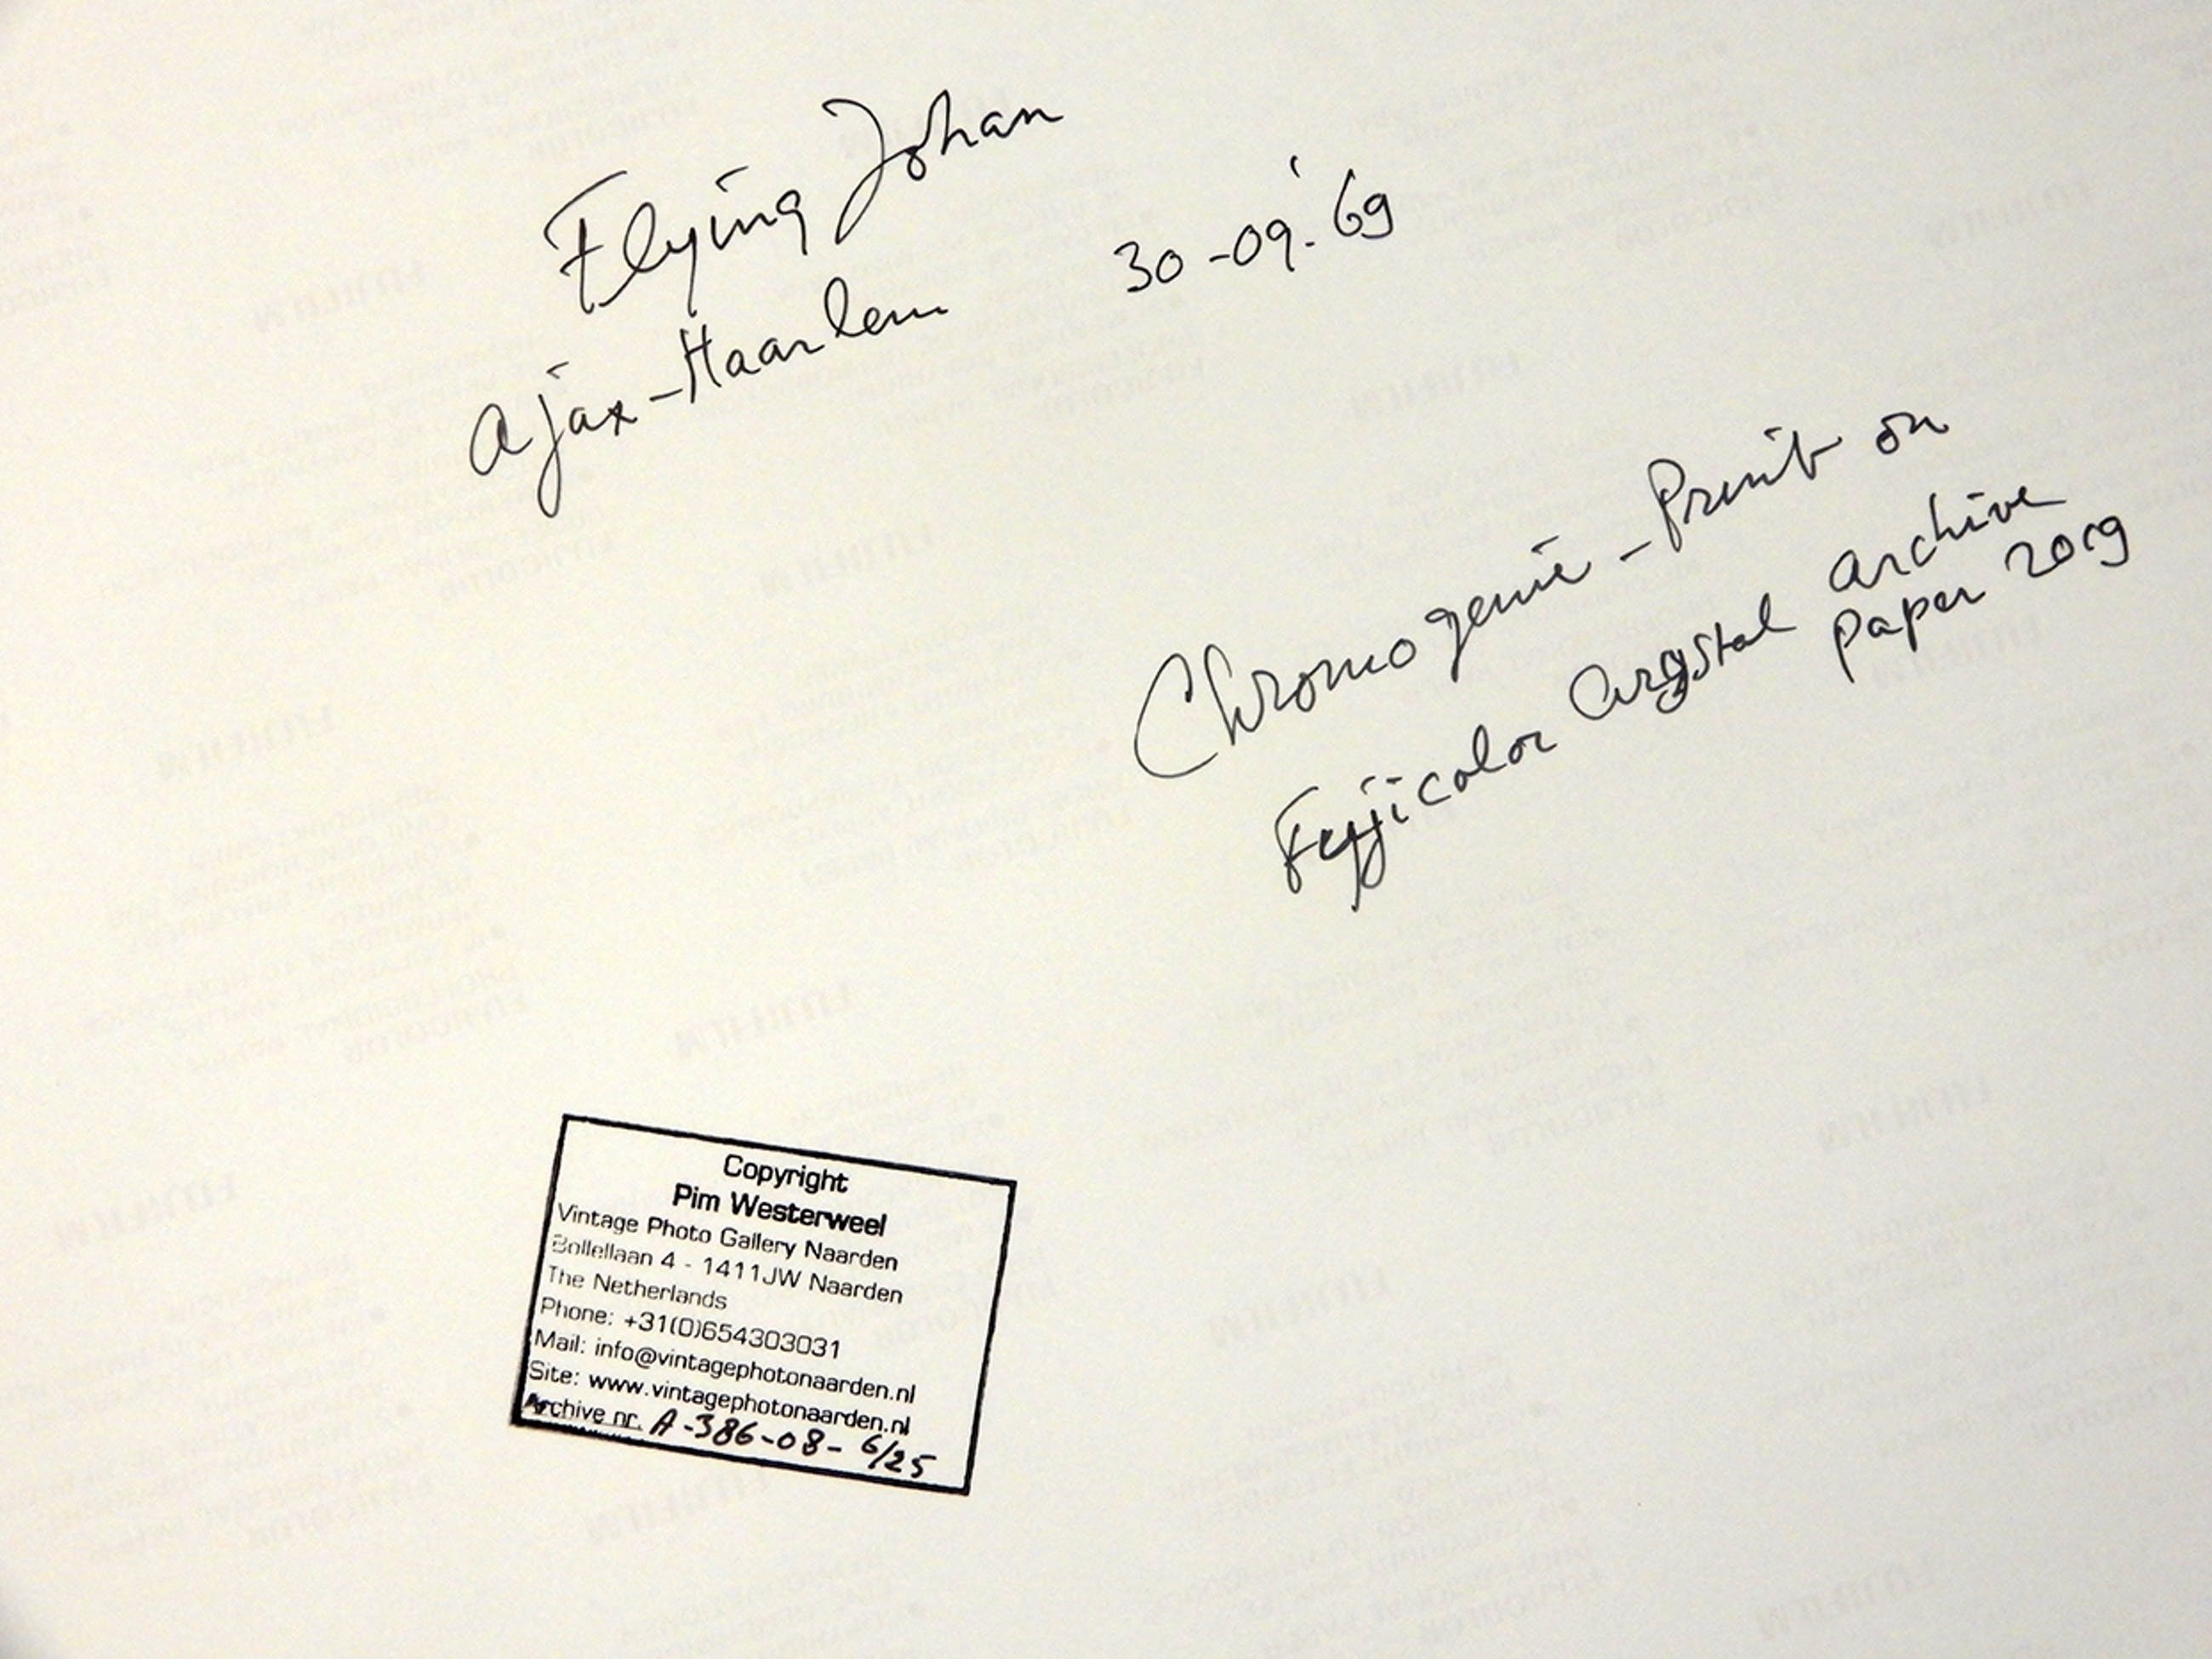 Flying Johan
Ajax-Haarlem 30-09-'69
Chromogenic - Print on
Fujicolor Crystal Archive
Paper 2019
Copyright
Pim Westerweel
Vintage Photo Gallery Naarden
Bollellaan 4 - 1411JW Naarden
The Netherlands
Phone: +31(0)654303031
Mail: info@vintagephotonaarden.nl
Site: www.vintagephotonaarden.nl
Archive nr. A-386-08-6/25